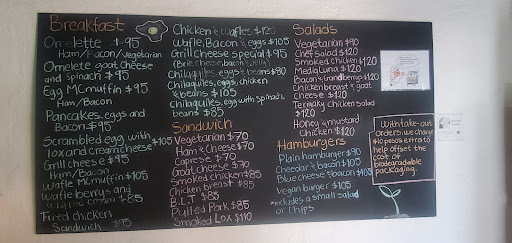 Breakfast
Omelette $95
Ham/Bacon/Vegetarian
Omelete goat cheese
and Spinach $95
Egg MCmuffin $95
Ham/Bacon
Pancakes, eggs and
Bacon $95
Scrambled egg with
lox and cream cheese $105
Grill cheese $95
Ham/Bacon
Wafle MCmuffin $105
Wafle berrys and
cream $85
Fried chicken
Sandwich $95
Chicken & Wafles $120
Wafle, Bacon & eggs $105
Grill Cheese special $95
(Brie cheese, bacon & Jelly)
Chilaquiles, eggs & beans $80
Chilaquiles, eggs, chicken
& beans $105
Chilaquiles, egg with spinach,
beans $85
Sandwich
Vegetarian $70
Ham & Cheese $70
Caprese $70
Goat Cheese $70
Smoked chicken $85
Chicken breast $85
B.L.T $85
Pulled Pork $85
Smoked Lox $110
Salads
Vegetarian $90
Chef Salad $120
Smoked Chicken $120
Media Luna $120
Bacon & Grand berrys $120
Chicken breast & goat
cheese $120
Teriyaky chicken Salad
$120
Honey & mustard
Chicken $120
Hamburgers
Plain hamburger $90
Cheddar & bacon $105
Blue cheese & bacon $105
Vegan burger $105
*includes a small salad
or chips
With take-out
Orders, we charge
$10 pesos extra to
help offset the
cost of
biodegradable
packaging.